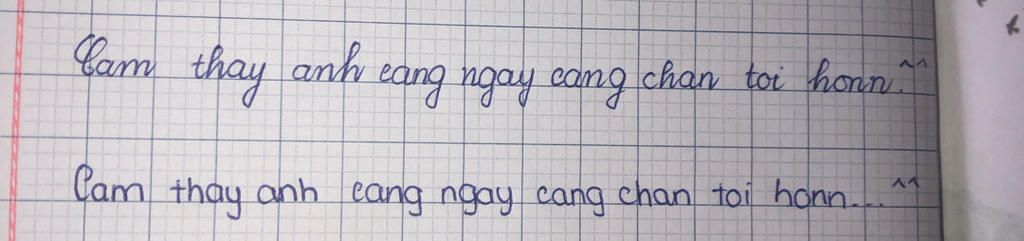 Cam thay anh cang ngay cang chan toi honn.^^
Cam thay anh cang ngay cang chan toi honn...^^